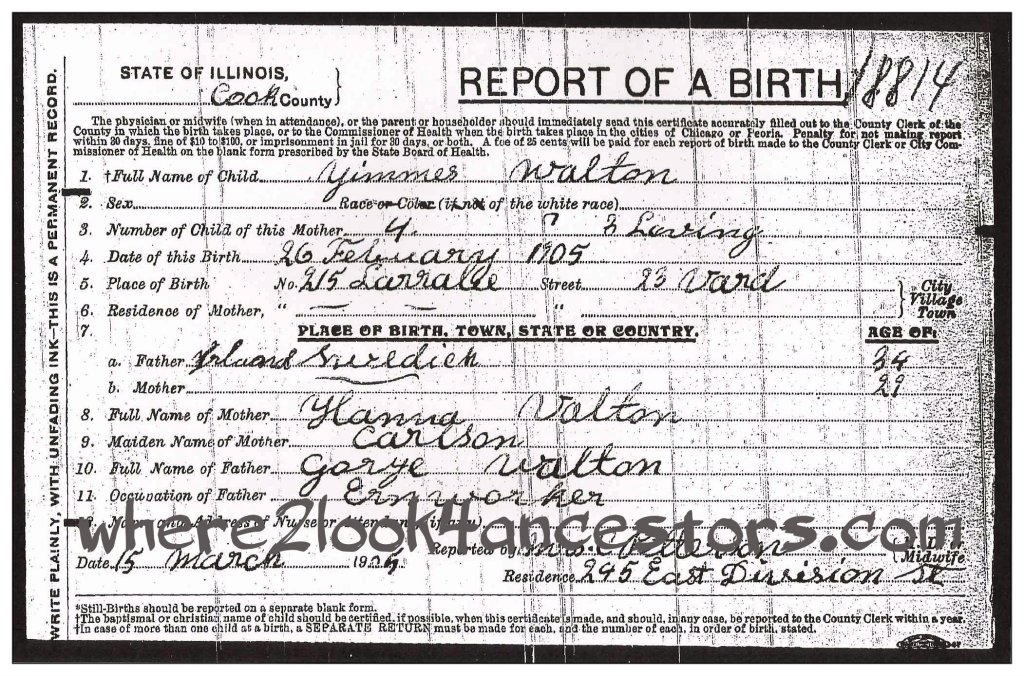 WRITE PLAINLY, WITH UNFADING INK—THIS IS A PERMANENT RECORD.
STATE OF ILLINOIS,
Cook County
REPORT OF A BIRTH
18814
The physician or midwife (when in attendance), or the parent or householder should immediately send this certificate accurately filled out to the County Clerk of the
County in which the birth takes place, or to the Commissioner of Health when the birth takes place in the cities of Chicago or Peoria. Penalty for not making report
within 30 days, fine of $10 to $100, or imprisonment in jail for 30 days, or both. A fee of 25 cents will be paid for each report of birth made to the County Clerk or City Com-
missioner of Health on the blank form prescribed by the State Board of Health.
1. †Full Name of Child Yimmes Walton
2. Sex Race or Color (if not of the white race)
3. Number of Child of this Mother 4. 3 Leving
4. Date of this Birth 26 Februory 1905
5. Place of Birth No. 215 Larrabe Street 23 Vard
City
Village
Town
6. Residence of Mother, " "
7. PLACE OF BIRTH, TOWN, STATE OR COUNTRY. AGE OF:
a. Father Irland Swedich 34
b. Mother 29
8. Full Name of Mother Hanna Valton
9. Maiden Name of Mother Carlson
10. Full Name of Father Gorge Walton
11. Occupation of Father Ernworker
12. Name and Address of Nurse or Attendant (if any)
where2look4ancestors.com
Reported by Mrs. Petterson
Midwife
Date 15 March 1905
Residence 295 East Division St
*Still-Births should be reported on a separate blank form.
†The baptismal or christian name of child should be certified, if possible, when this certificate is made, and should, in any case, be reported to the County Clerk within a year.
†In case of more than one child at a birth, a SEPARATE RETURN must be made for each, and the number of each, in order of birth, stated.